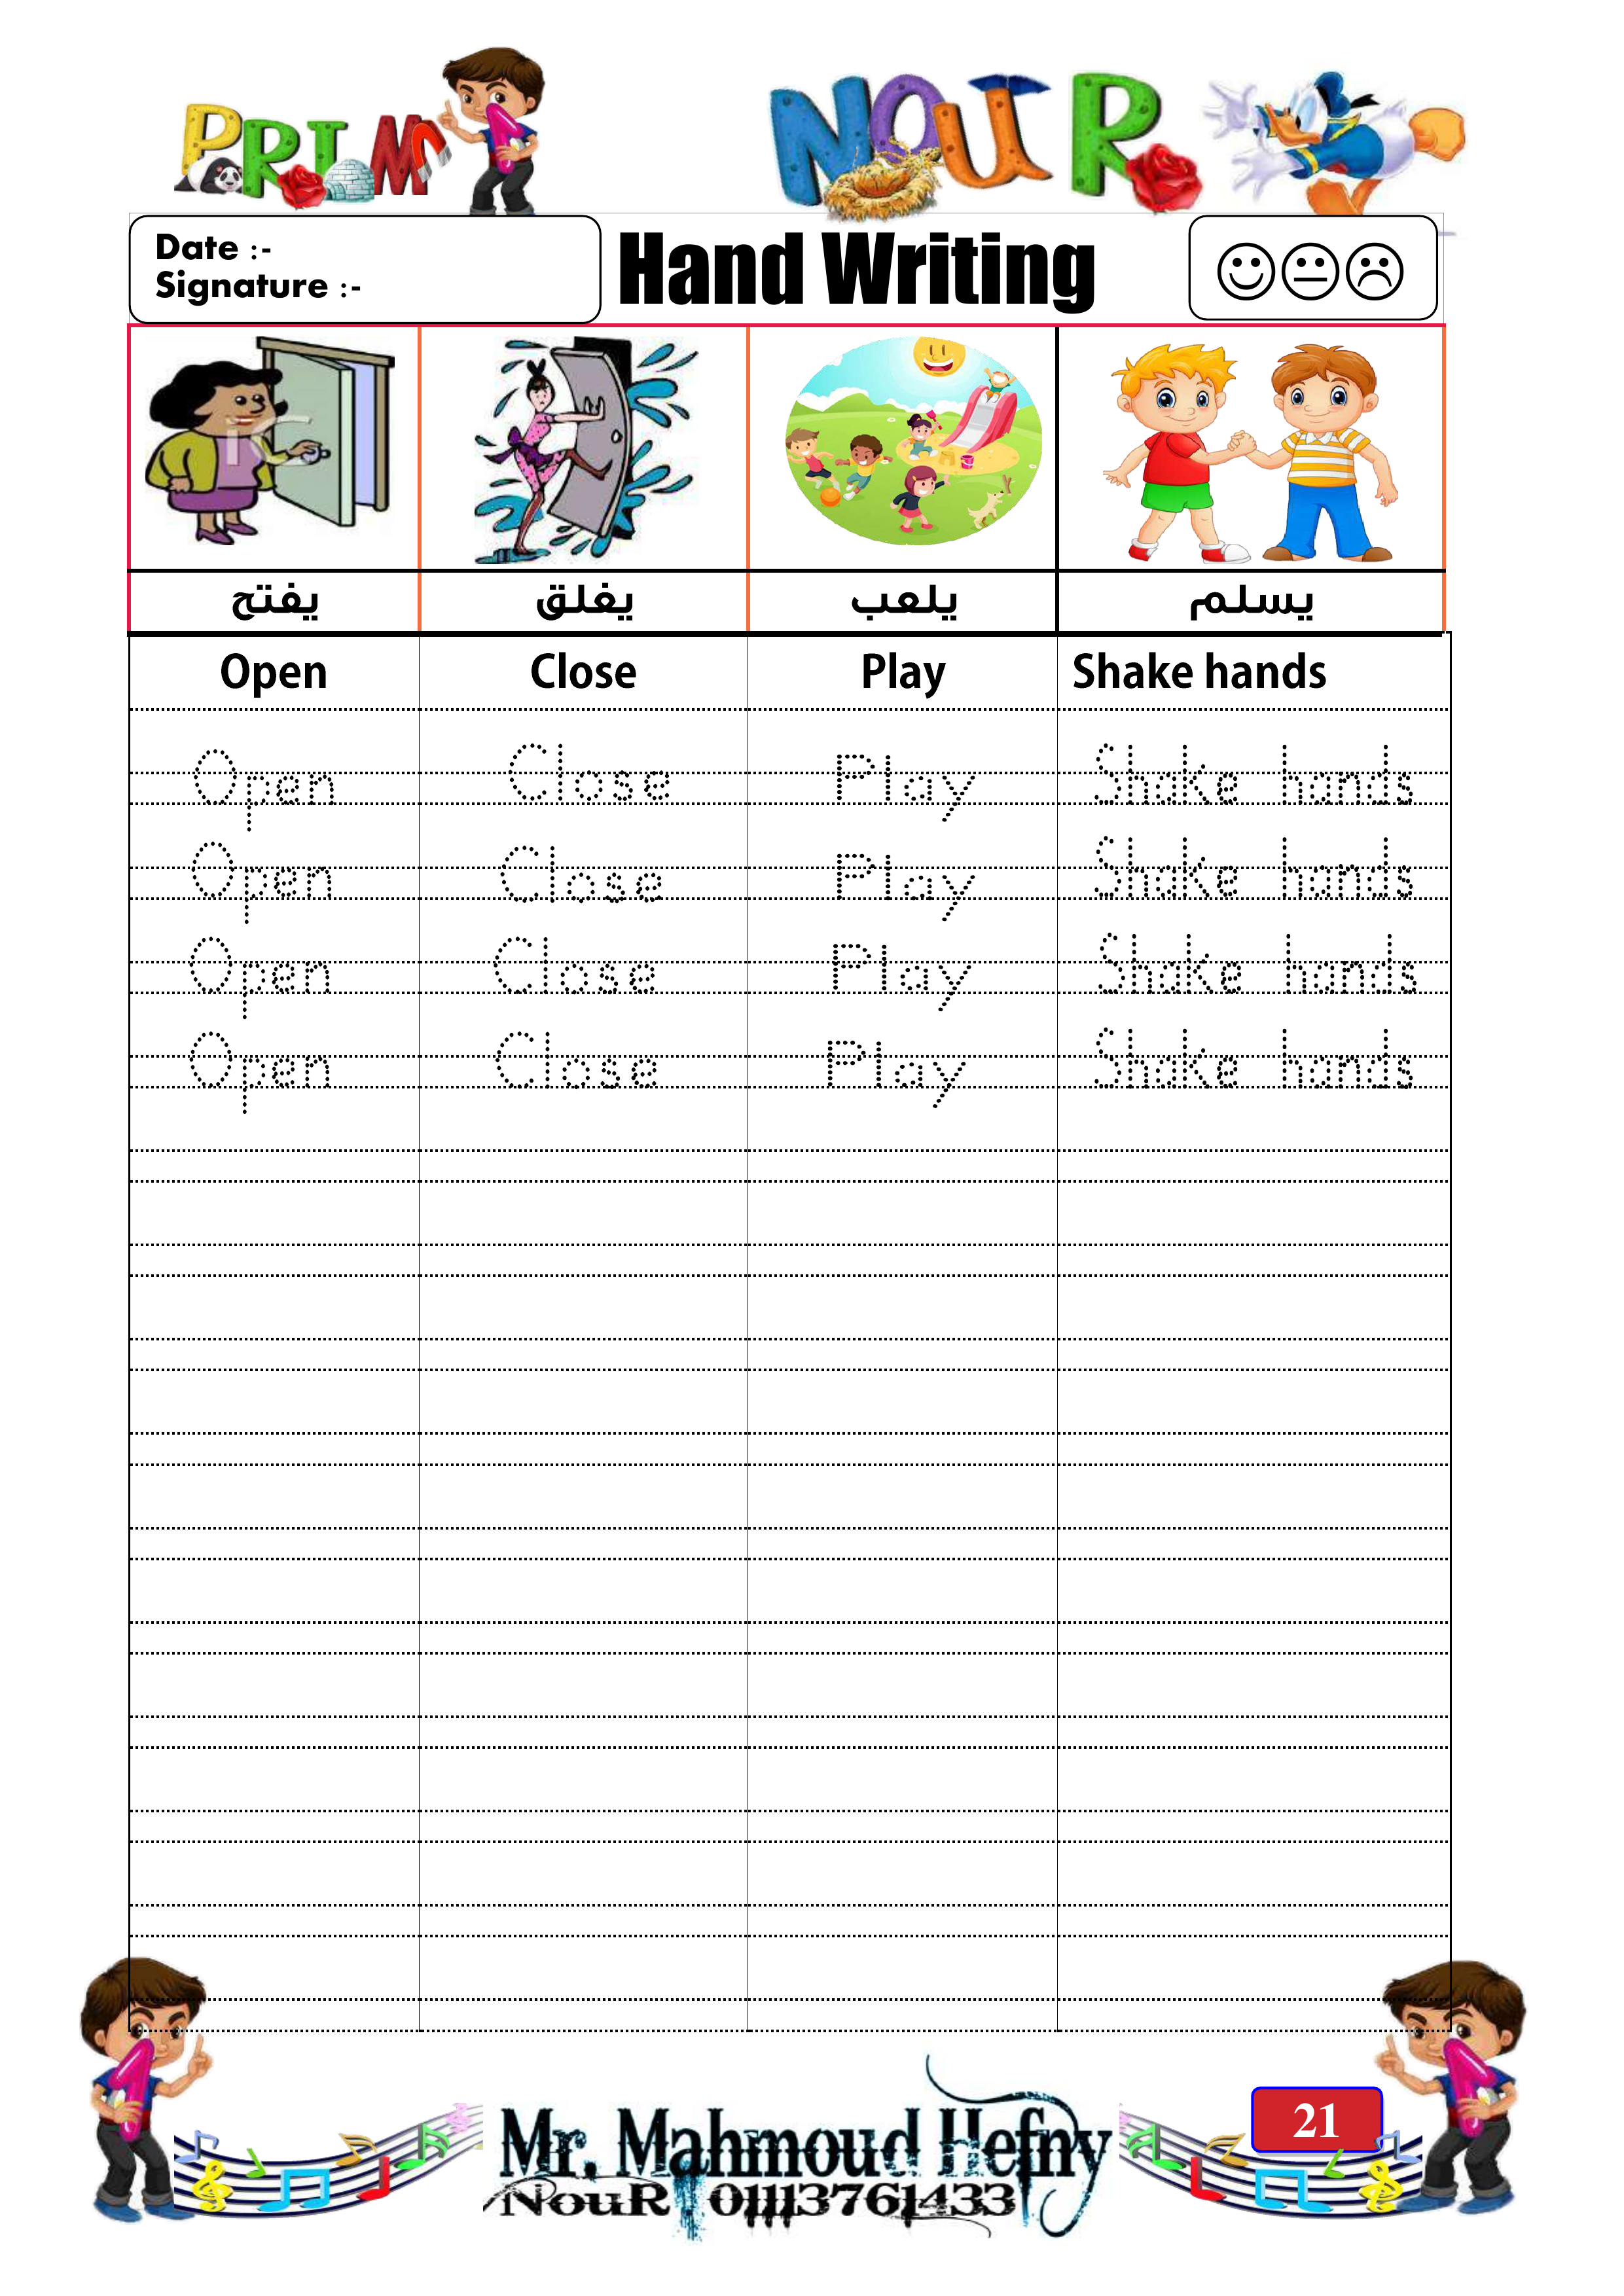 PRIM 1 NOUR
Date :-
Signature :-
Hand Writing
يفتح يغلق يلعب يسلم
Open Close Play Shake hands
Open Close Play Shake hands
Open Close Play Shake hands
Open Close Play Shake hands
Open Close Play Shake hands
21
Mr. Mahmoud Hefny
NouR 01113761433